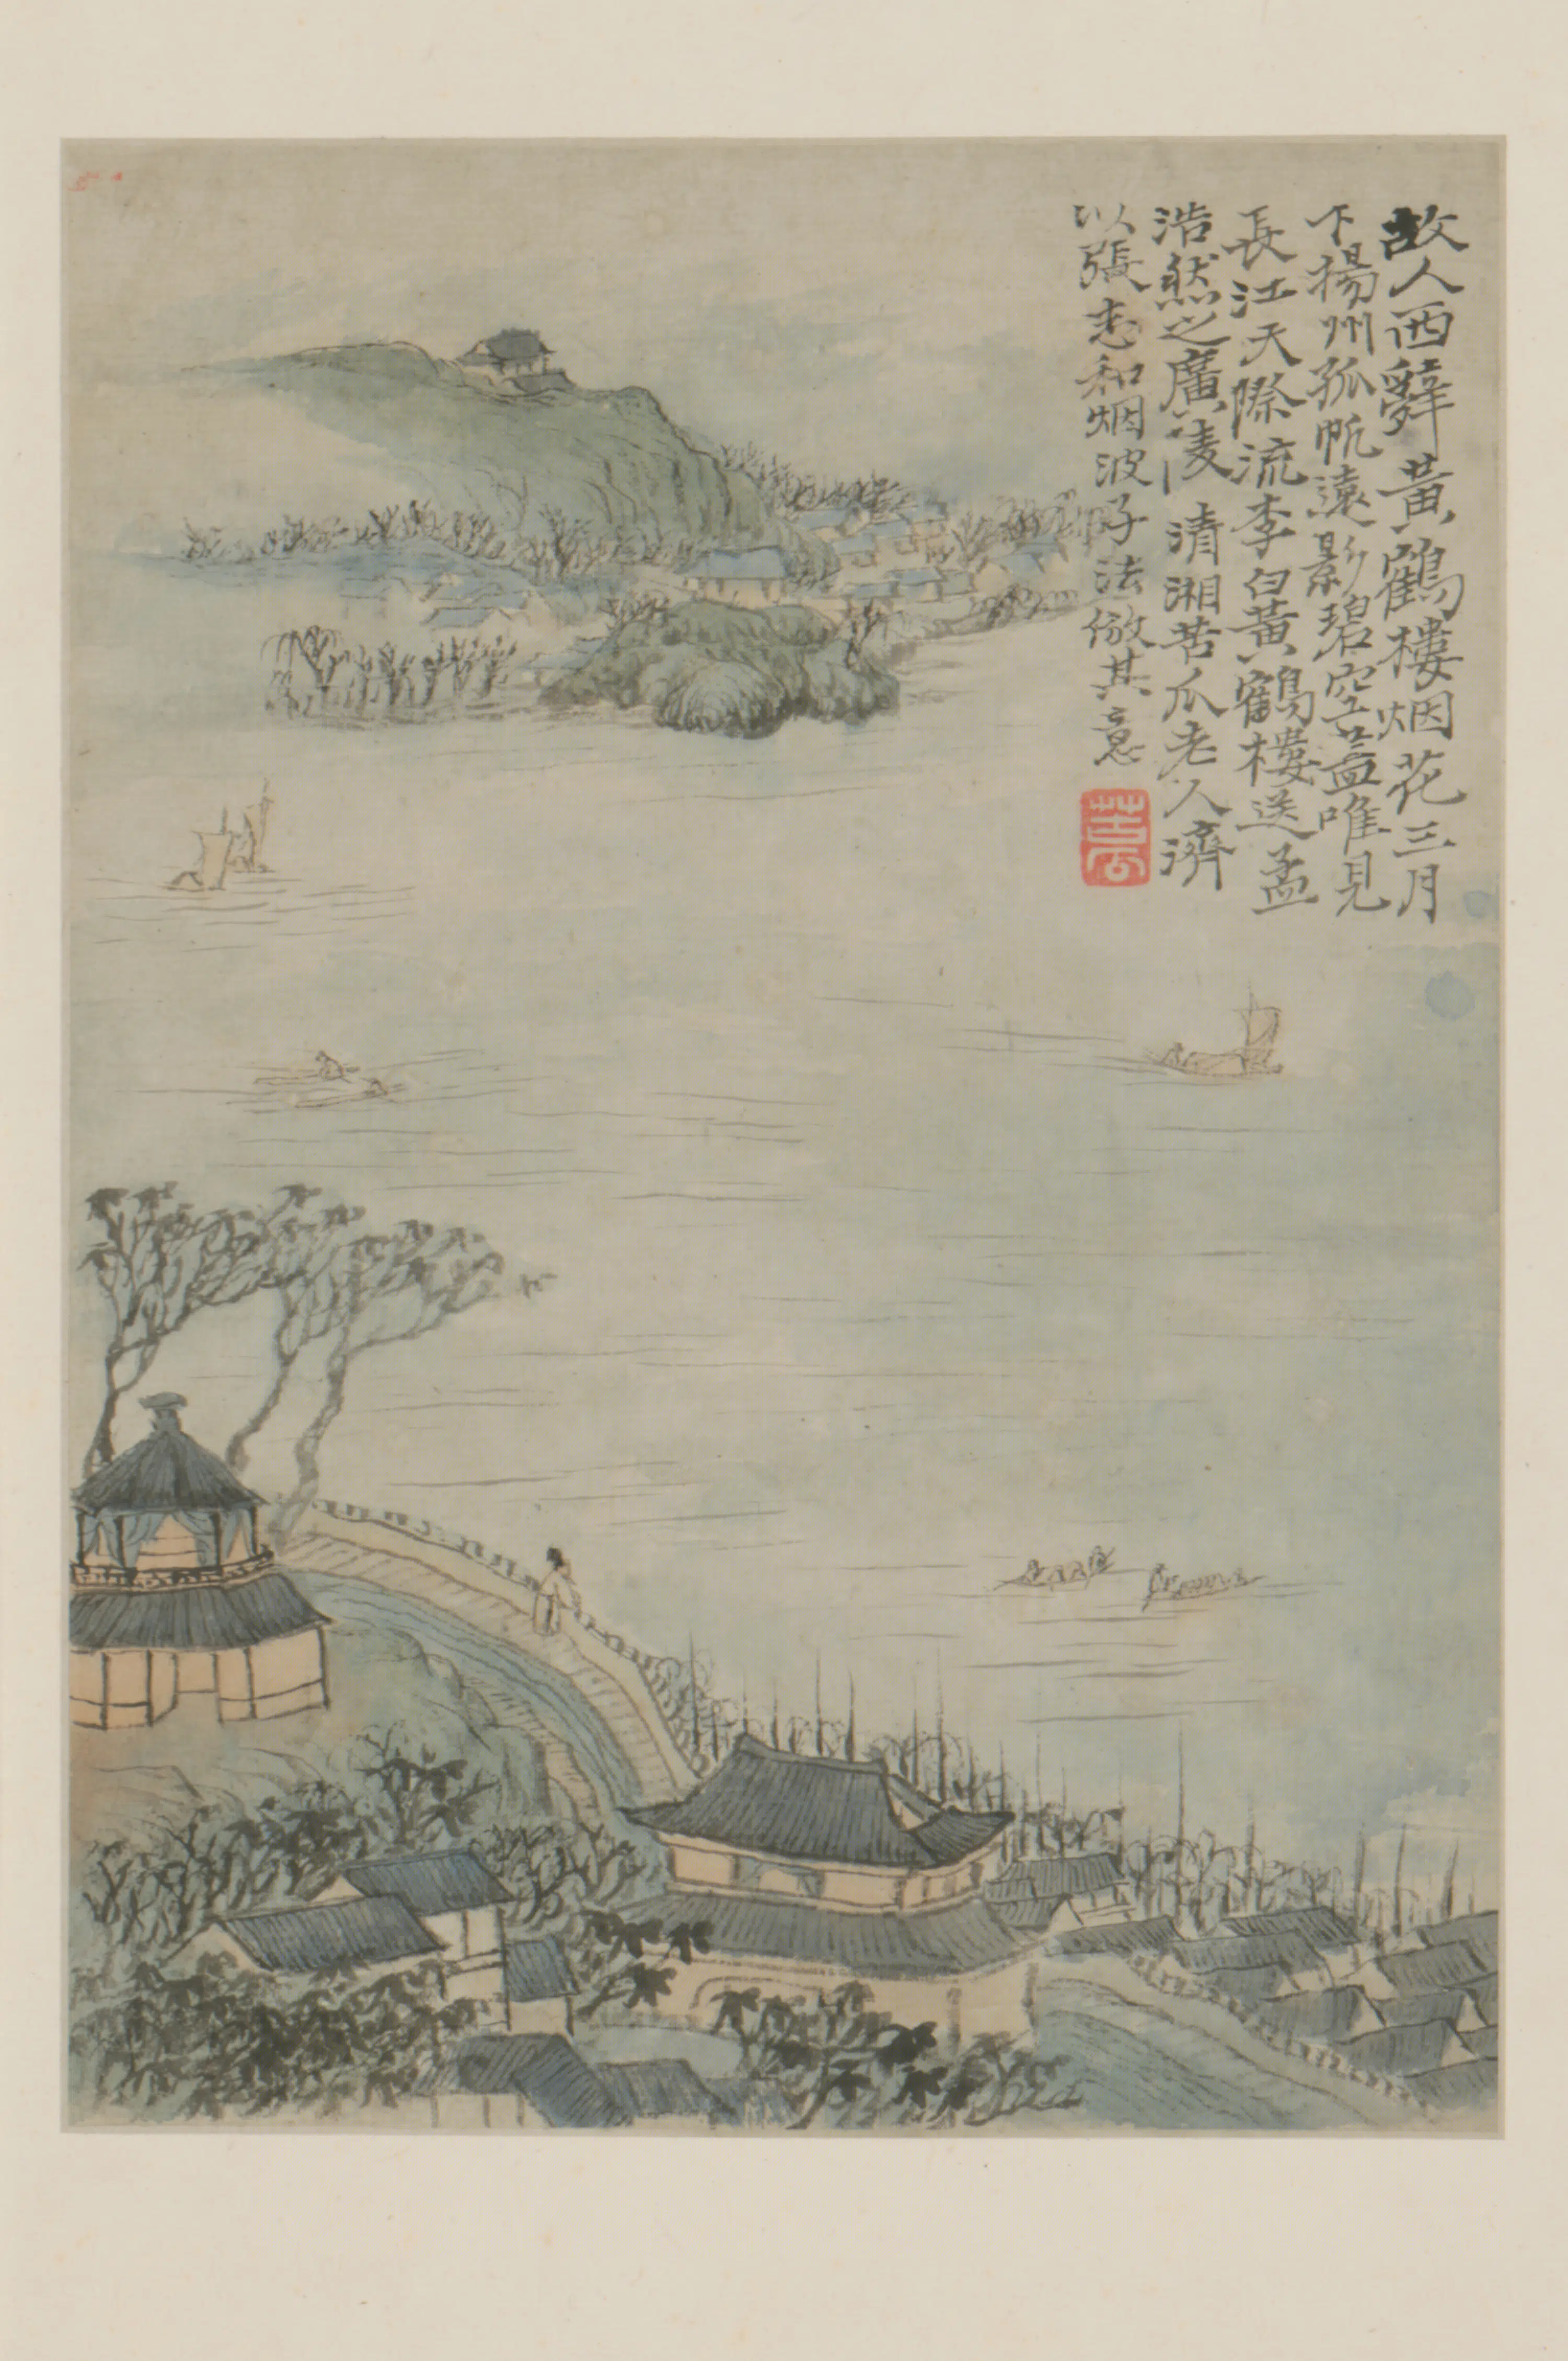 故人西辭黃鶴樓烟花三月
下揚州孤帆遠影碧空盡唯見
長江天際流李白黃鶴樓送孟
浩然之廣陵 清湘苦瓜老人濟
以張志和烟波子法倣其意